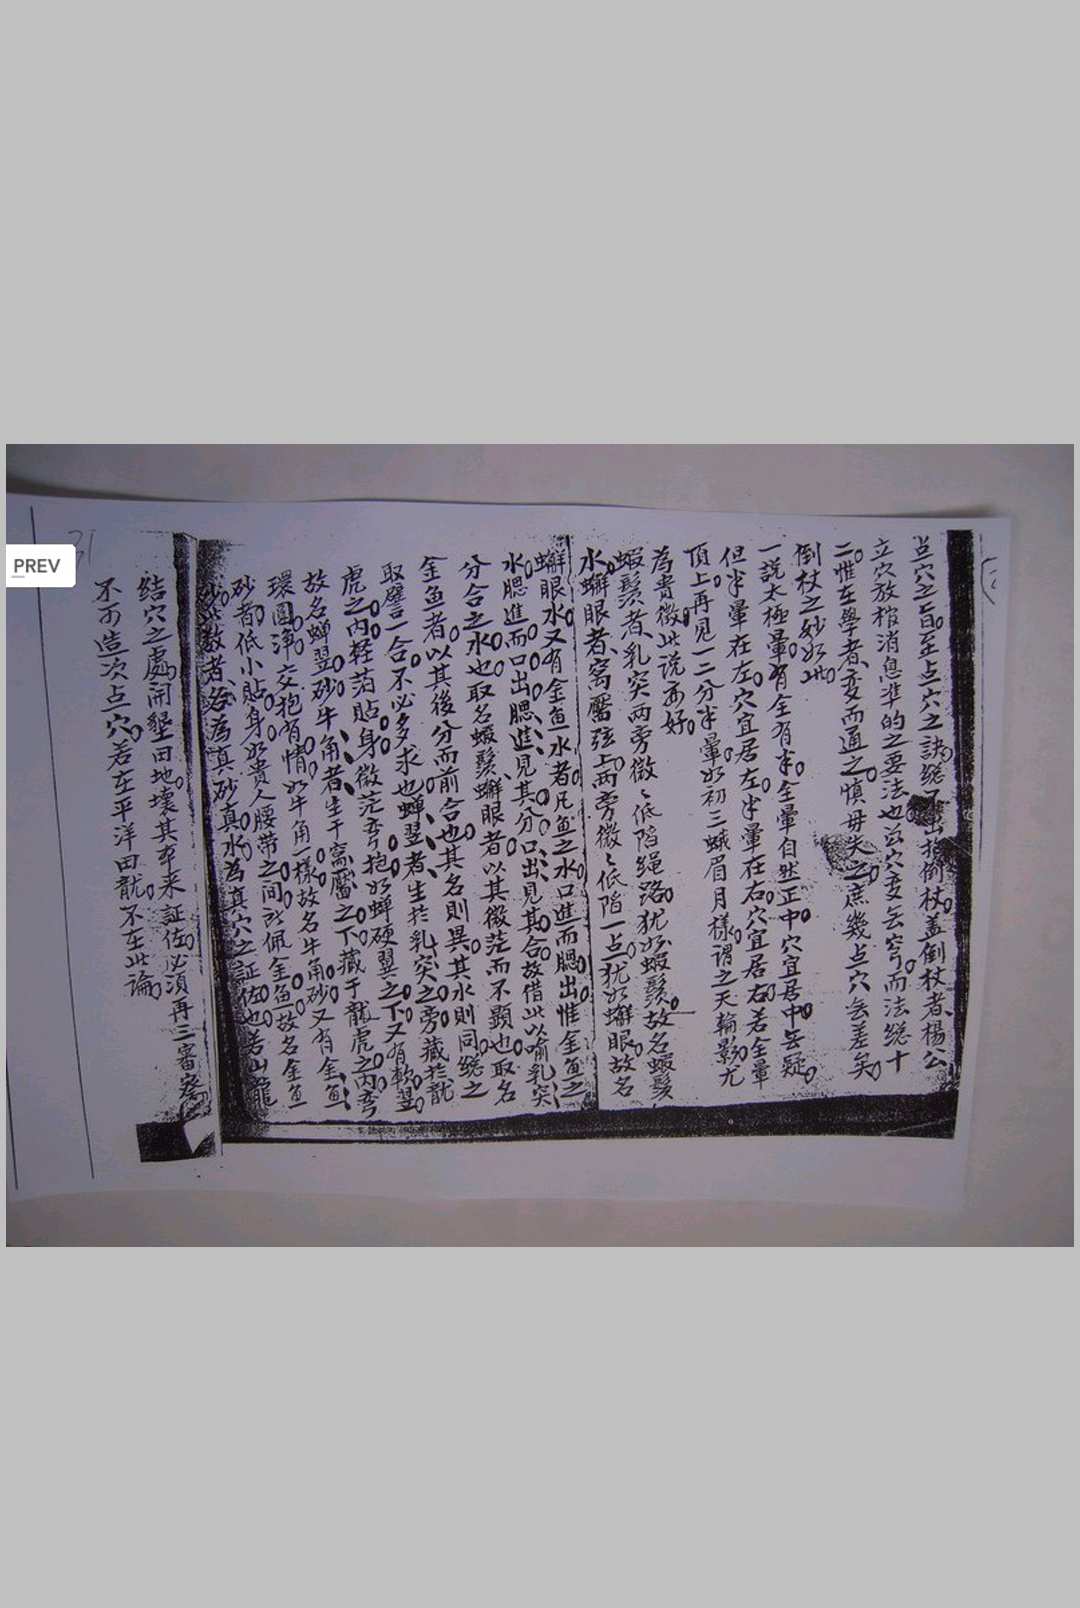 点穴之旨。至点穴之訣總不出於倒杖。盖倒杖者、楊公
立穴放棺消息準的之要法也。盖穴变無穷。而法總十
二。惟在學者、变而通之。慎毋失之。庶幾点穴無差矣。
倒杖之妙如此。
一說太極暈。有全有半。全暈自然正中。穴宜居中。無疑。
但半暈在左。穴宜居左。半暈在右。穴宜居右。若全暈
頂上。再見一二分半暈。如初三蛾眉月樣。謂之天輪影。尤
為貴徵。此說亦好。
蝦鬚者、乳突兩旁微微低陷繩路。犹如蝦鬚。故名蝦鬚
水。蠏眼者、窩靨弦上。兩旁微微低陷一点。犹如蠏眼。故名
蠏眼水。又有金鱼水者。凡鱼之水口進而腮出。惟金鱼之
水腮進而口出。腮進、見其分。口出、見其合。故借此以喻乳突
分合之水也。取名蝦鬚蠏眼者。以其微茫而不顯也。取名
金鱼者。以其後分而前合也。其名則異。其水則同。總之
取譬一合。不必多求也。蟬翌者、生於乳突之旁。藏於龍
虎之内。軽薄貼身。微茫弯抱。如蟬硬翼之下。又有軟翌。
故名蟬翌砂。牛角者、生于窩靨之下。藏于龍虎之内。弯
環圓净。交抱有情。如牛角一樣。故名牛角砂。又有金鱼
砂者。低小貼身。如貴人腰带之間。所佩金鱼。故名金鱼
砂。此数者、名為真砂真水。為真穴之証佐也。若山龍
結穴之處。開墾田地。壞其本来証佐。必須再三審察。
不可造次点穴。若在平洋田龍。不在此論。
PREV